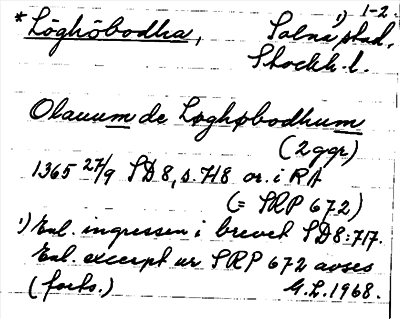 1-2.
*Löghöbodha, Solna¹⁾ stad,
Stockh. l.
Olauum de Løghøbodhum
(2 ggr)
1365 27/9 SD 8, s. 718 or. i RA
(= SRP 672)
¹⁾ Enl. ingressen i brevet SD 8:717.
Enl. excerpt ur SRP 672 avses
(forts.) G.L. 1968.